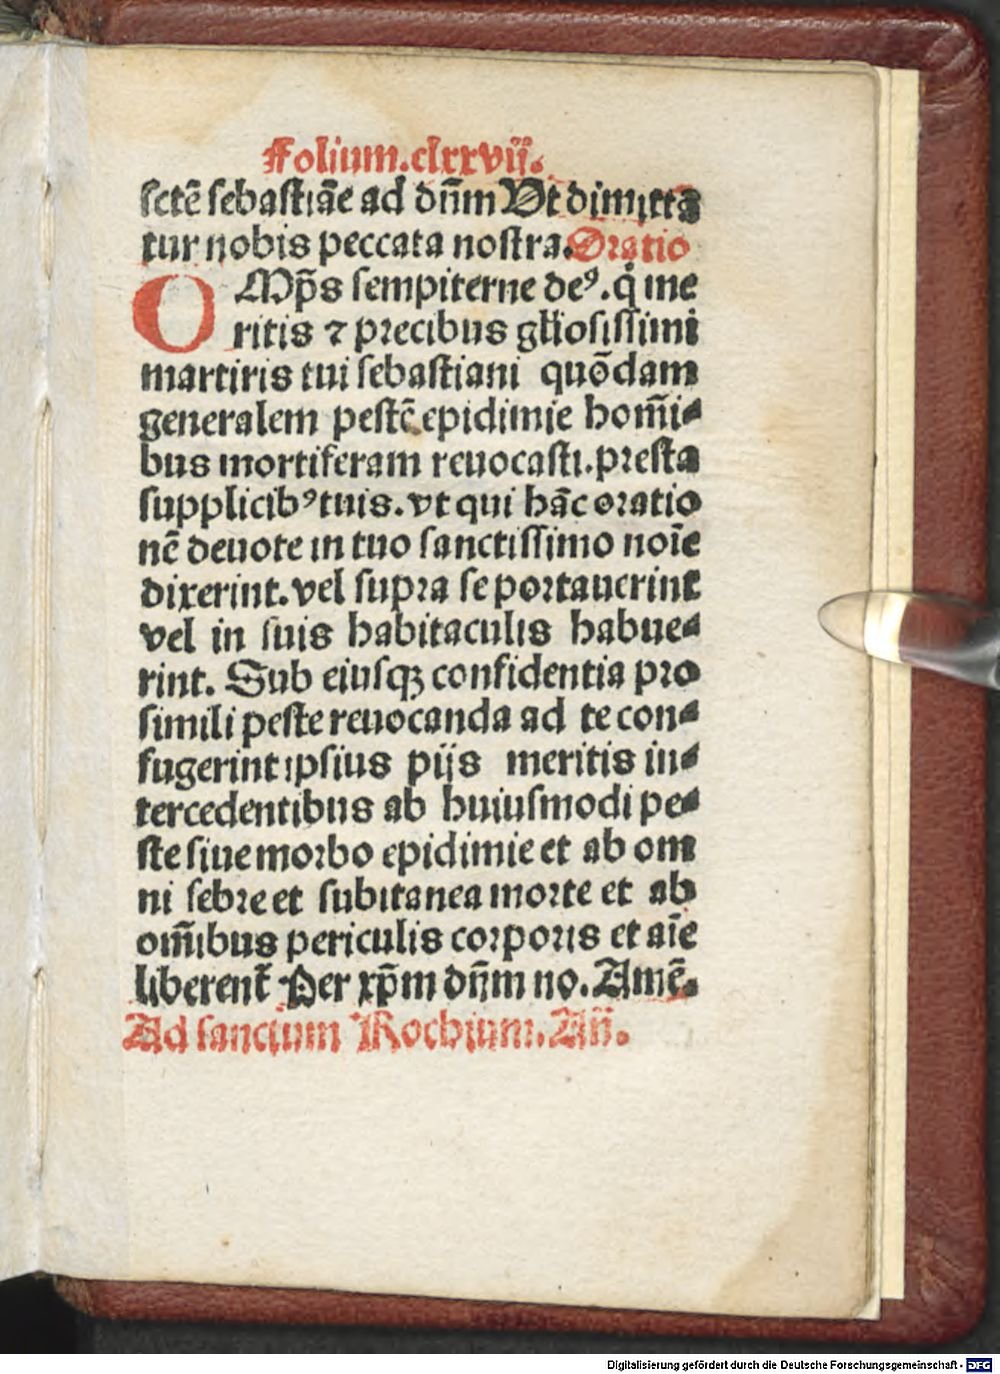 Folium.clxxvij.
sctē sebastiāe ad dn̄m Vt dimittā
tur nobis peccata nostra. Oratio
OMp̄s sempiterne deꝰ. q̇ me
ritis ⁊ precibus gl̄iosissimi
martiris tui sebastiani quōdam
generalem pestē epidimie hom̄i⸗
bus mortiferam reuocasti. presta
supplicibꝰ tuis. vt qui hāc oratio
nē deuote in tuo sanctissimo noīe
dixerint. vel supra se portauerint
vel in suis habitaculis habue⸗
rint. Sub eiusqꝫ confidentia pro
simili peste reuocanda ad te con⸗
fugerint ipsius pijs meritis in⸗
tercedentibus ab huiusmodi pe⸗
ste siue morbo epidimie et ab om
ni febre et subitanea morte et ab
om̄ibus periculis corporis et aīe
liberent̄ Per xp̄m dn̄m no. Amē.
Ad sanctum Rochium. An̄.
Digitalisierung gefördert durch die Deutsche Forschungsgemeinschaft - DFG